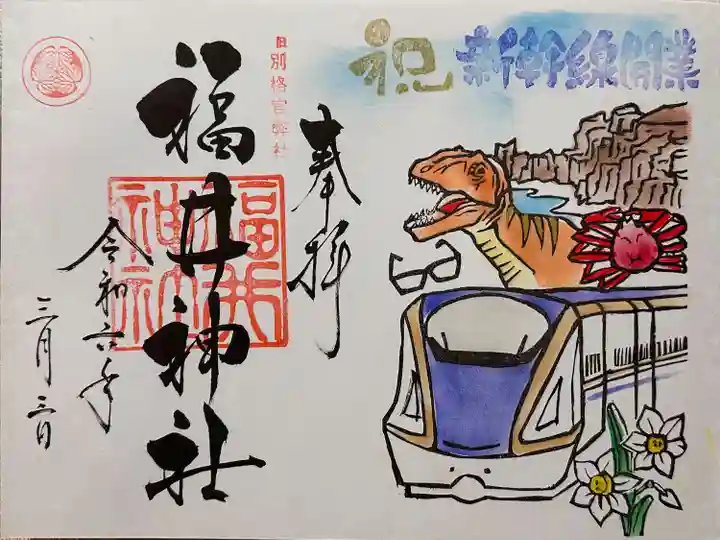 祝 新幹線開業
奉拝
旧別格官幣社
福井神社
福井神社
令和六年
三月三日